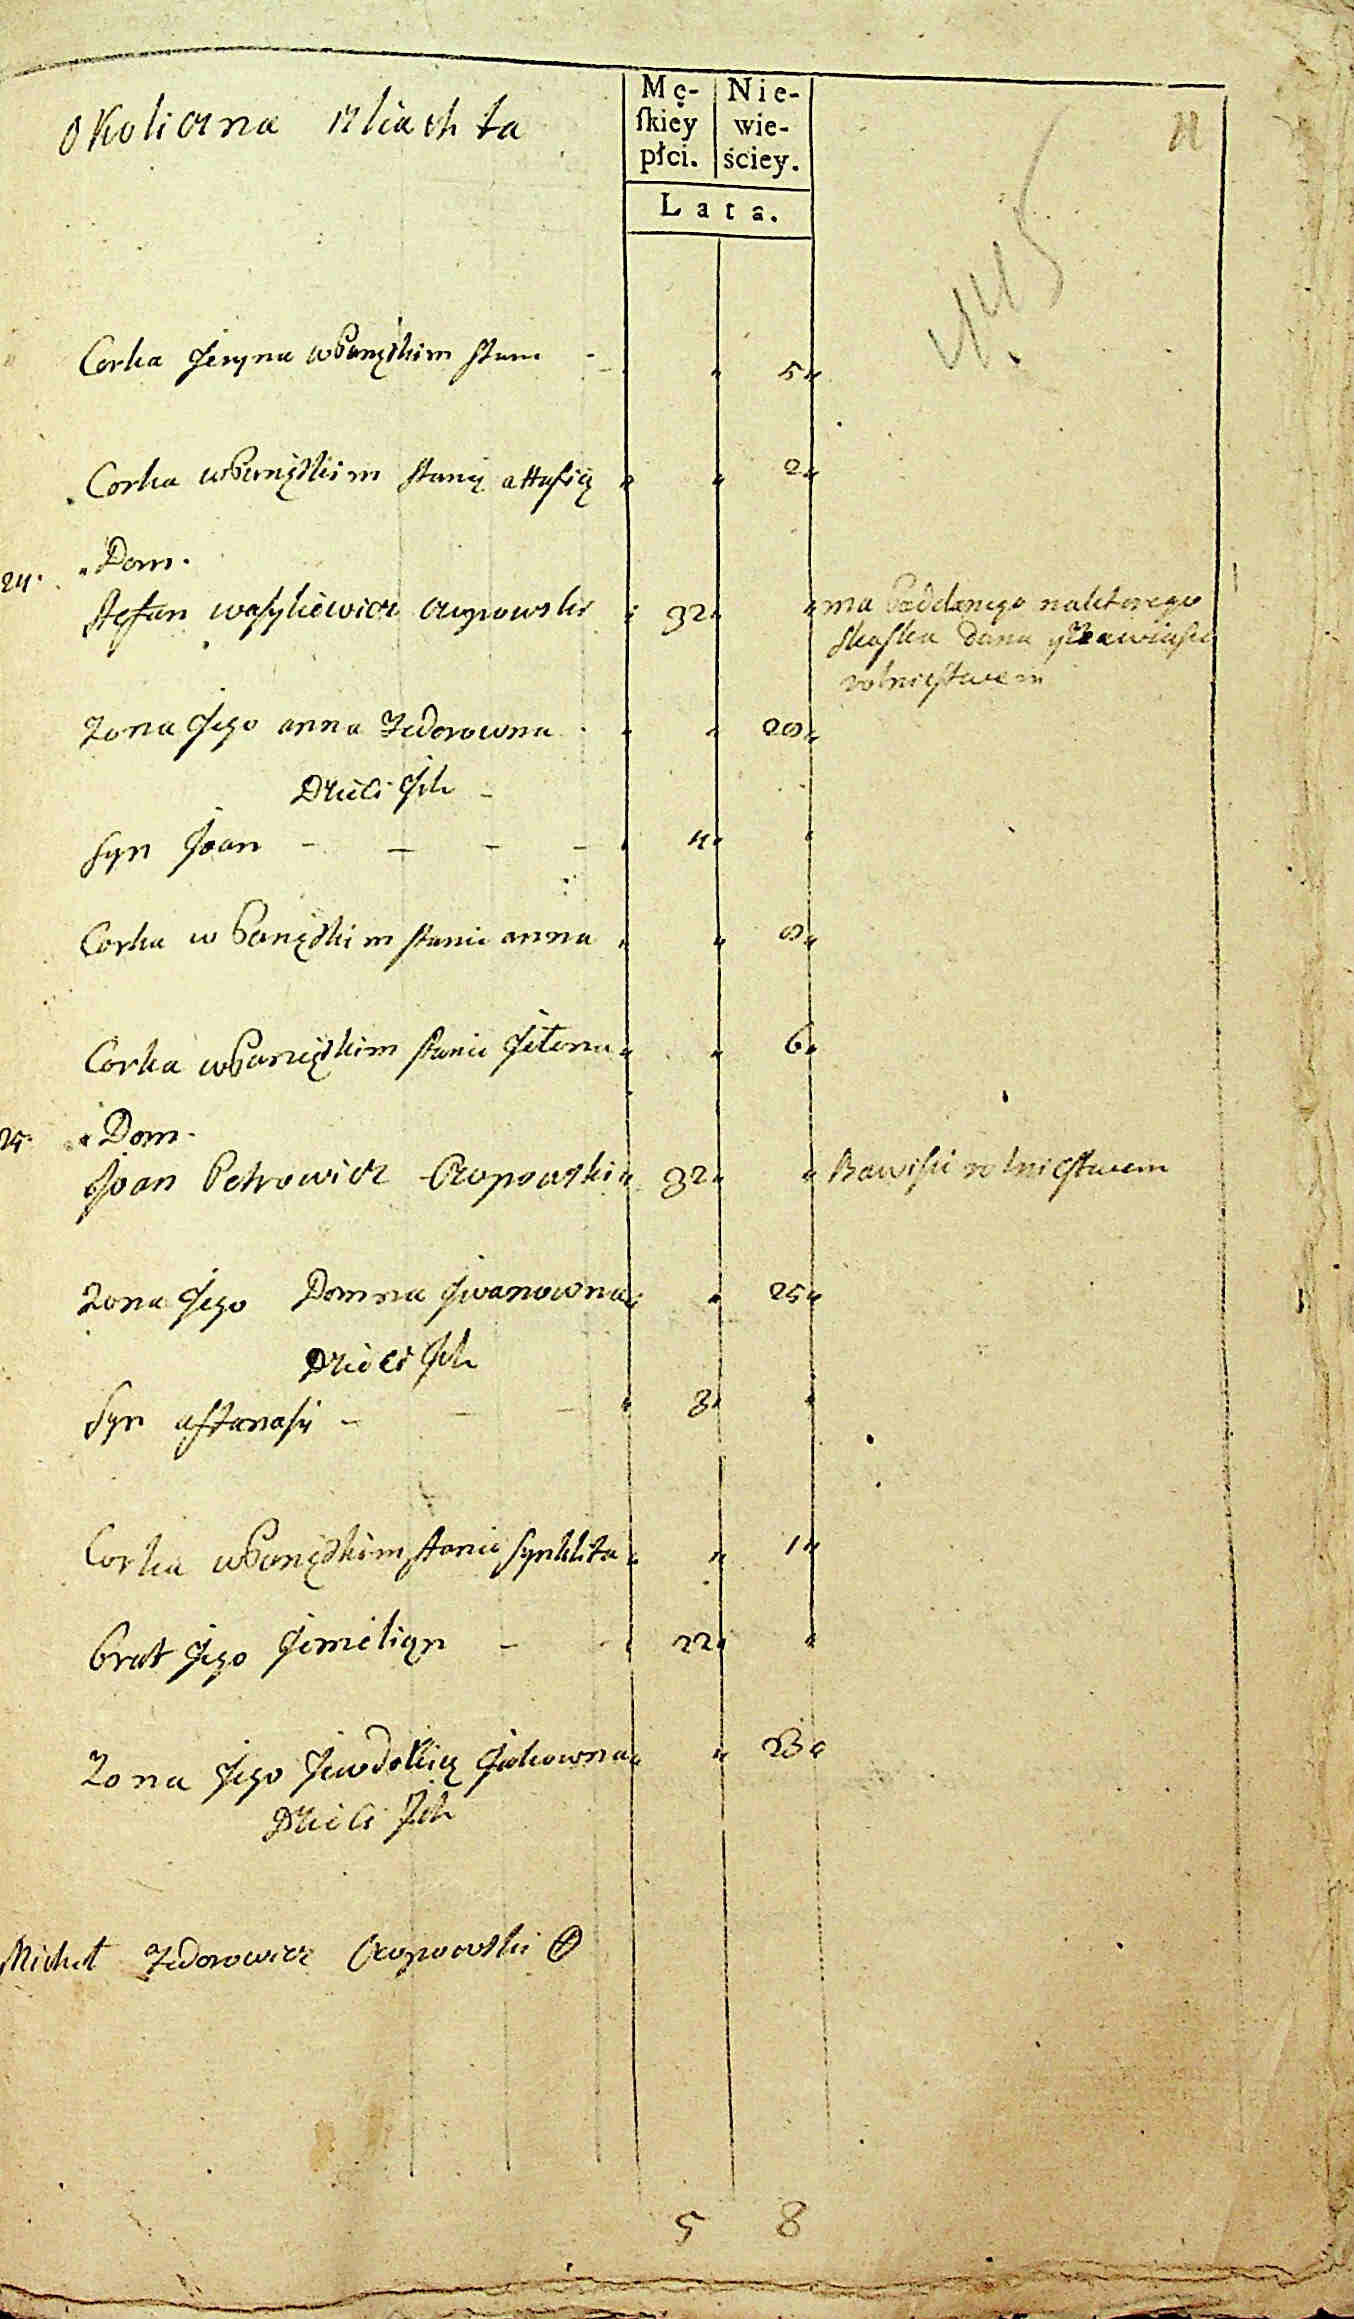 Okoliczna szliachta
Mę-
skiey
płci.
Nie-
wie-
ściey.
Lata.
11
Corka Jeryna w Panięskim stani - „ 5 „
Corka w Panięskim stanię „ „ 2 „
24. „ Dom.
Stefan Wasyliewicz Czopowski „ 32 „ „ ma Poddanego naktorego
skaska dana y Bawiąsię
rolniestwem
Zona Jego anna Fedorowna „ „ 28 „
Dzieci Jch -
Syn Joan - - - - „ 4 „ „
Corka w Panięskim stanie anna „ „ 8 „
Corka w Panięskim stanie Jelena „ „ 6 „
25. „ Dom.
Joan Petrowicz Czopowski „ 32 „ „ Bawisie rolniestwem
Zona Jego Domna Jwanowna „ „ 25 „
Dzieci Jch
Syn aftanasy - - - „ 3 „ „
Corka w Panięskim stanie Synklita „ „ 1 „
Brat Jego Jemelian - - „ 22 „ „
Zona Jego Jewdokia Jakowna „ „ 23 „
Dzieci Jch
Michał Fedorowicz Czopowski
5 8